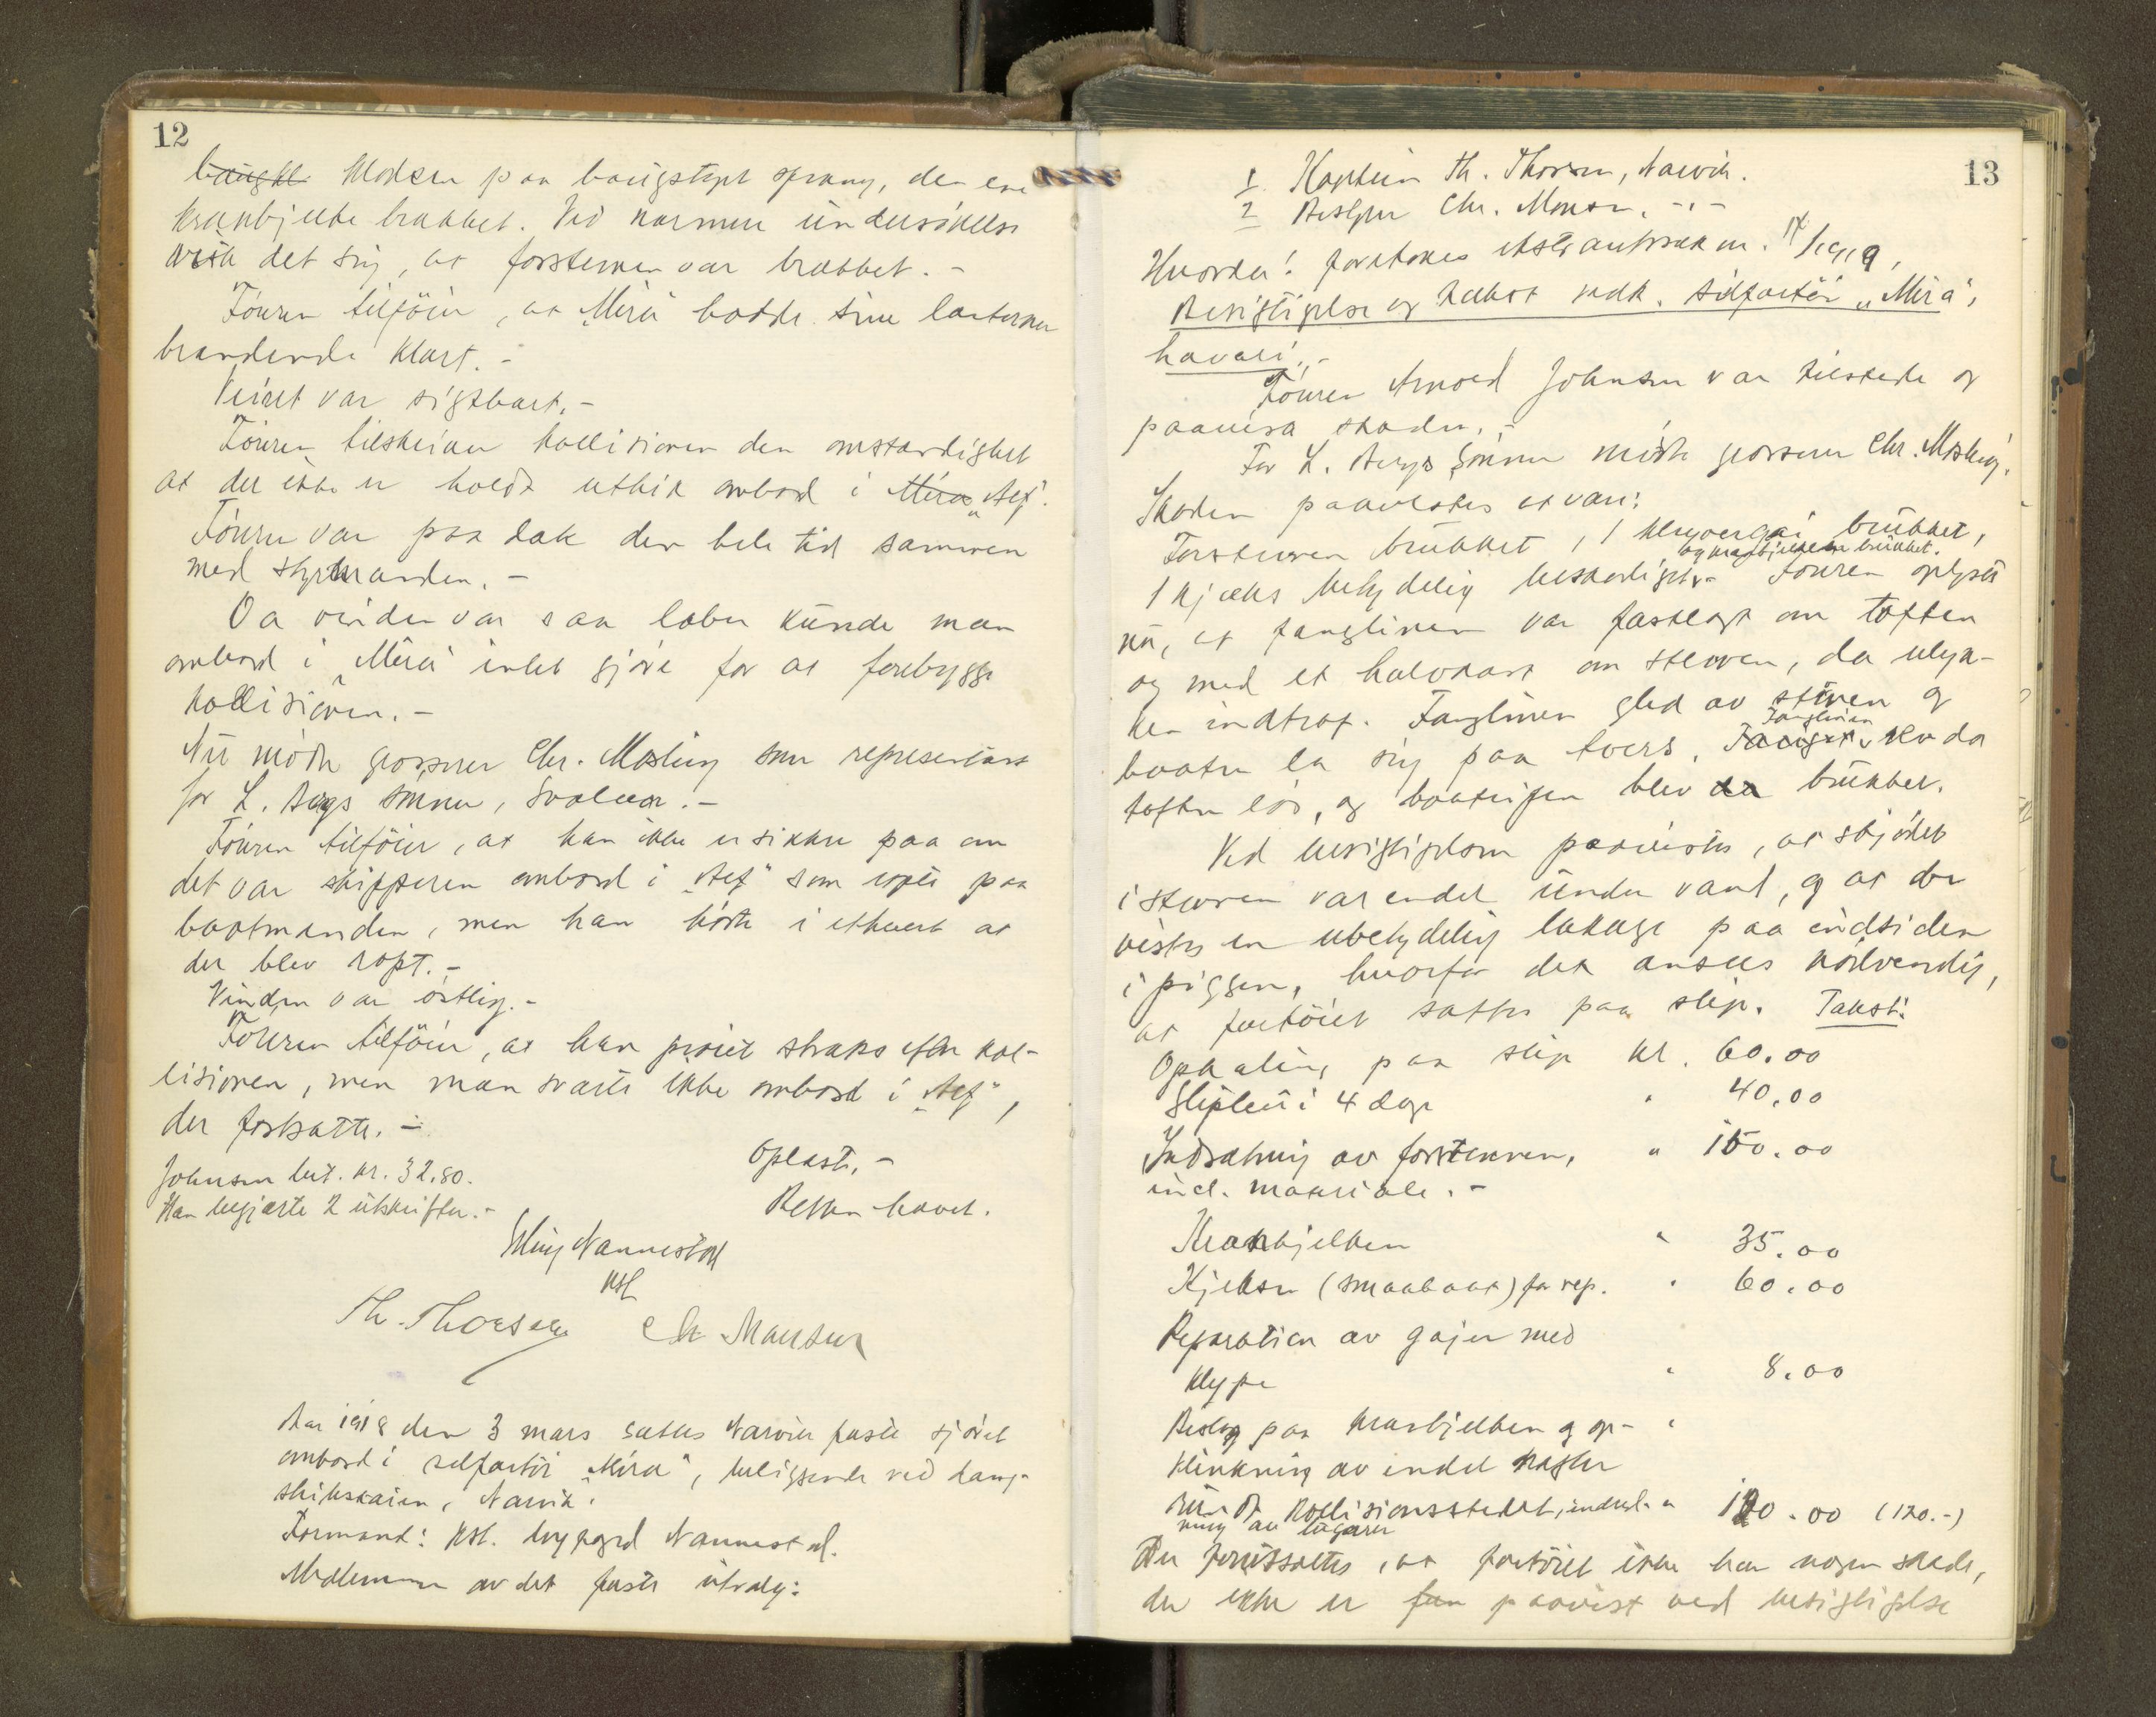 12
baugst klodsen paa baugstopt sprang, den ene
kranbjelke brækket. Ved nærmere undersökelse
viste det sig, at forstevnen var brækket. -
Föreren tilföier, at "Mira" hadde sine lanterner
brændende klart. -
Veiret var sigtbart. -
Föreren tilskriver kollisionen den omstændighet
at der ikke er holdt utkik ombord i Mira "Alf".
Föreren var paa dæk den hele tid sammen
med styrmanden. -
Da vinden var saa laber kunde man
ombord i "Mira" intet gjöre for at forebygge
kollisionen. -
Nu mötte grosserer Chr. Mosling som repræsentant
for L. Bergs sönner, Svolvær. -
Föreren tilföier, at han ikke er sikker paa om
det var skipperen ombord i "Alf" som ropte paa
baatmanden, men han hörte i ethvert at
der blev ropt. -
Vinden var östlig. -
Föreren tilföier, at han straks efter kol-
lisionen, men man svarte ikke ombord i "Alf",
der fortsatte. -
Oplæst. -
Johnsen bet. kr. 32.80.
Han begjærte 2 utskrifter. -
Retten hævet.
Nannestad
Kst
Th. Thorsen Chr Monsen
Aar 1918 den 3 mars sattes Narvik faste sjöret
ombord i seilfartöi "Mira", beliggende ved damp-
skibskaien, Narvik.
Formand: Kst. byfogd Nannestad.
Medlemmer av det faste utvalg:
13
1 Kaptein Th. Thorsen, Narvik.
2 Chr. Monsen, -"-
Hvorda! foretokes
Besigtigelse og takst vedk. seilfartöi "Mira"s
havari. -
Föreren Arnold Johnsen var tilstede og
paaviste skaden. -
For L. Bergs Sönner mötte grosserer Chr. Mosling.
Skaden paavistes at være:
Forstevnen brækket, 1 klyvergai brækket,
og kranbjelken brækket.
1 kjæks betydelig beskadiget. - Föreren oplyste
nu, at fanglinen var fastlagt om toften
og med et halvstik om stevnen, da ulyk-
ken indtraf. Fanglinen gled av stevnen og
Fanglinen
baaten la sig paa tvers. rev da
toften lös, og baatripen blev da brækket.
Ved besigtigelsen paavistes, at skjödet
i stevnen var endel under vand, og at der
vistes en ubetydelig lækage paa indsiden
i piggen, hvorfor det ansees nödvendig,
at fartöiet sattes paa slip. Takst:
Ophaling paa slip kr. 60.00
Slipleie i 4 dage " 40.00
Indsætning av forstevnen, " 150.00
incl. materiale. -
Kranbjelken " 35.00
Kjeksen (smaabaat) for rep. " 60.00
Reparation av gajer med
klype " 8.00
Beslag paa kranbjelken og op- "
klinkning av endel nagler
rundt kollisionsstedet, indsl. " 120.00 (120.-)
ning av lugarer
Det forutsættes, at fartöiet ikke har nogen skade,
der ikke er paavist ved besigtigelse